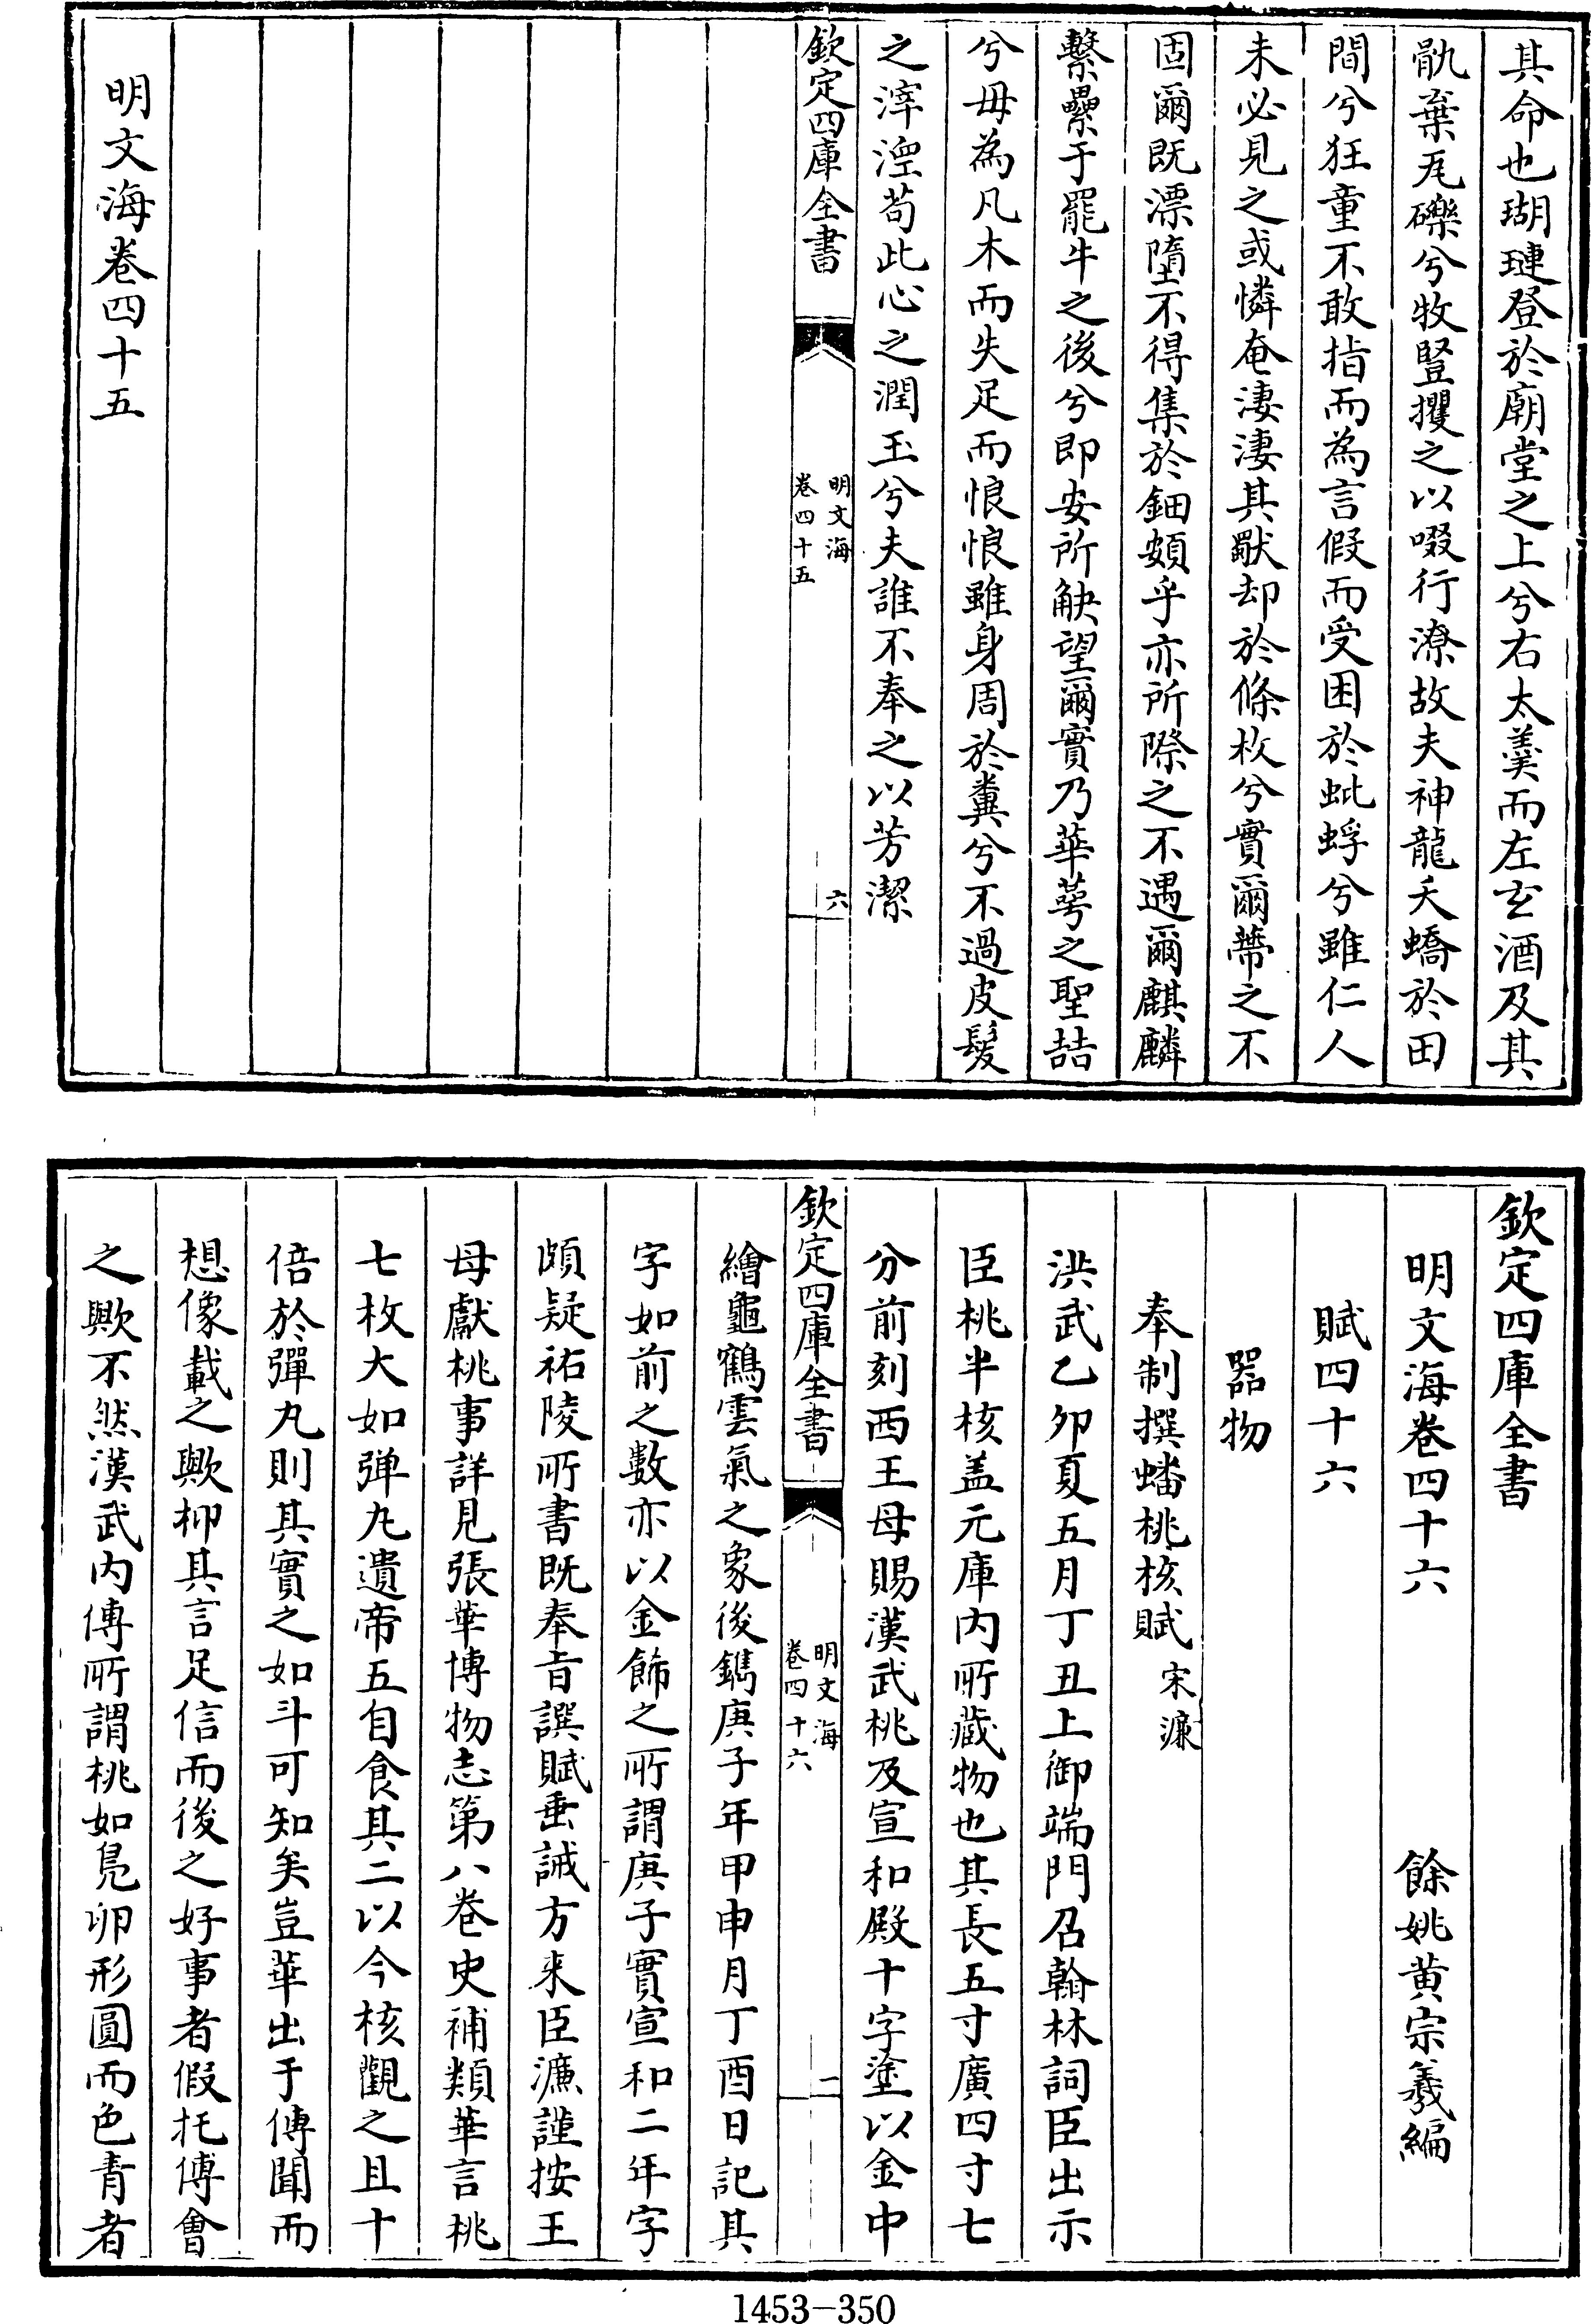 其命也瑚璉登於廟堂之上兮右太羹而左玄酒及其
骩棄瓦礫兮牧豎攫之以啜行潦故夫神龍夭蟜於田
間兮狂童不敢指而為言假而受困於蚍蜉兮雖仁人
未必見之或憐奄淒淒其厭却於條枚兮實爾蔕之不
固爾既漂墮不得集於鈿頞乎亦所際之不遇爾麒麟
繫纍于罷牛之後兮即安所觖望爾實乃華萼之聖喆
兮毋為凡木而失足而悢悢雖身周於糞兮不過皮髮
之滓涅苟此心之潤玉兮夫誰不奉之以芳潔
欽定四庫全書
明文海
卷四十五
六
明文海卷四十五
欽定四庫全書
明文海卷四十六
餘姚黃宗羲編
賦四十六
器物
奉制撰蟠桃核賦 宋濂
洪武乙卯夏五月丁丑上御端門召翰林詞臣出示
臣桃半核盖元庫内所藏物也其長五寸廣四寸七
分前刻西王母賜漢武桃及宣和殿十字塗以金中
欽定四庫全書
明文海
卷四十六
二
繪龜鶴雲氣之象後鐫庚子年甲申月丁酉日記其
字如前之數亦以金飾之所謂庚子實宣和二年字
頗疑祐陵所書既奉旨譔賦垂誡方来臣濂謹按王
母獻桃事詳見張華博物志第八卷史補類華言桃
七枚大如弹丸遺帝五自食其二以今核觀之且十
倍於彈丸則其實之如斗可知矣豈華出于傳聞而
想像載之歟抑其言足信而後之好事者假托傅會
之歟不然漢武内傳所謂桃如鳬卵形圓而色青者
1453-350